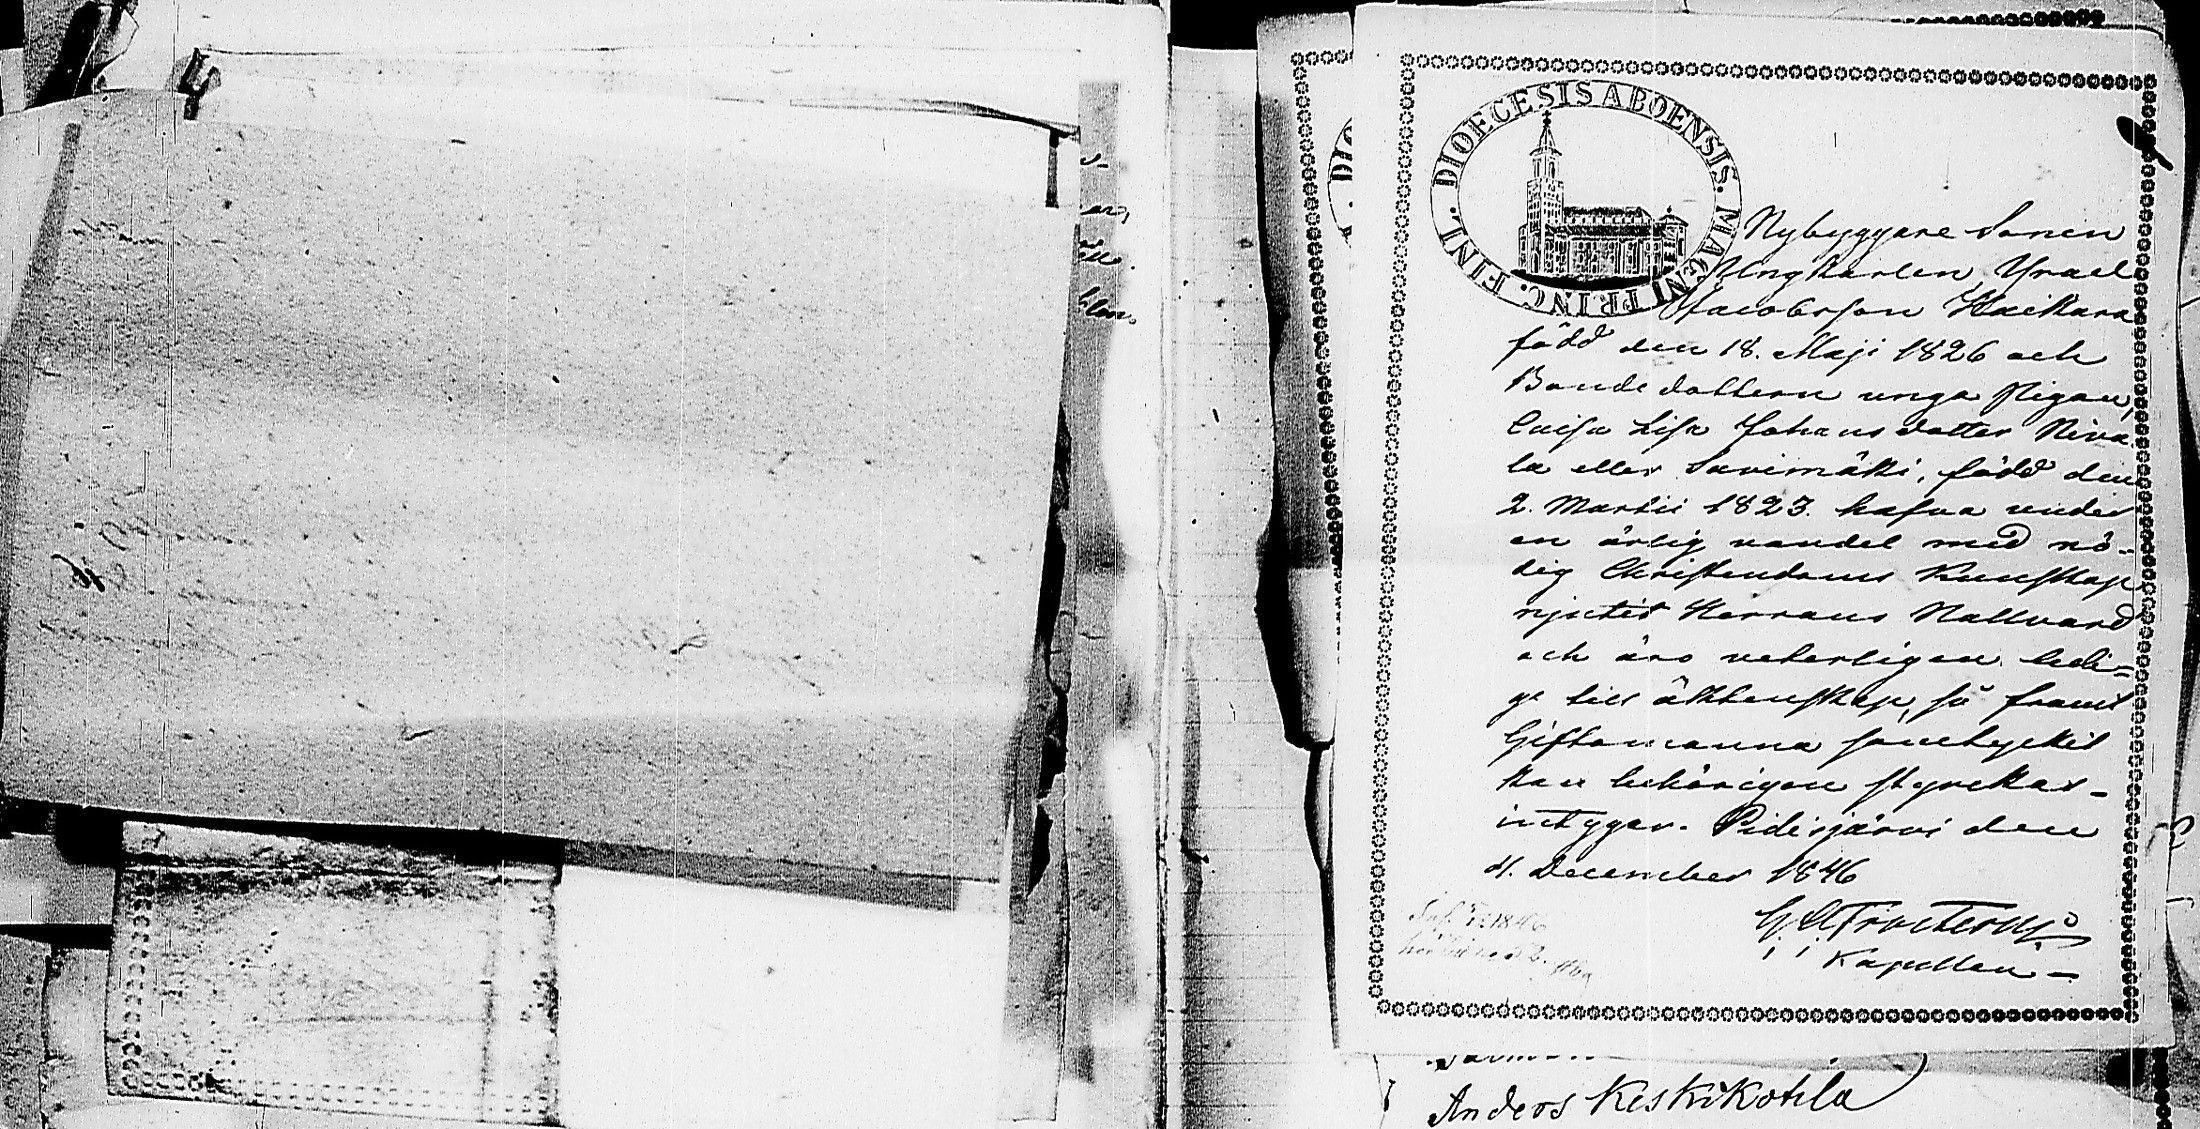 DIOECESIS ABOENSIS. MAGNI PRINC. FINL.
Nybyggare Sonen
Ungkarlen Ysrael
Jacobsson Haikara
född den 18. Maji 1826 och
Bonde dottern unga Pigan,
Caisa Lisa Johansdotter Niva
la eller Savimäki, född den
2. Martii 1823. hafva under
en ärlig vandel med nö-
dig Christendoms Kunskap
njutit Herrans Nattvard
och äro veterligen ledi-
ga till äktenskap, så framt
Giftomanna samtycket
kan behörigen styrckas -
intygar. Pidisjärvi den
4. December 1846
Kapellan -
Anders Keskikotila